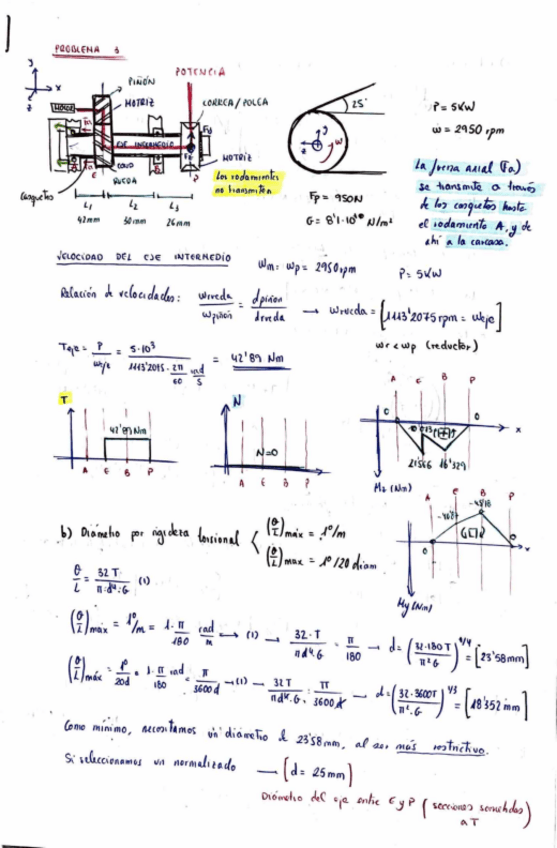 PROBLEMA 3
POTENCIA
y
x
z
PIÑÓN
MOTRIZ
MOTOR
CORREA/POLEA
EJE INTERMEDIO
RUEDA
MOTRIZ
Casquetes
Los rodamientos
no transmiten
L1
L2
L3
42mm
30 mm
26mm
25°
ω
Fp = 950N
G = 8'1·10¹⁰ N/m²
P = 5KW
ω = 2950 rpm
La fuerza axial (Fa)
se transmite a través
de los casquetes hasta
el rodamiento A, y de
ahí a la carcasa.
VELOCIDAD DEL EJE INTERMEDIO
ωm = ωp = 2950rpm
P = 5KW
Relación de velocidades: ωrueda/ωpiñon = dpiñon/drueda → ωrueda = [1113'2075 rpm = ωeje]
ωr < ωp (reductor)
Teje = P/ωeje = 5·10³/(1113'2075·2π/60 rad/s) = 42'89 Nm
T
42'89 Nm
A E B P
N
N=0
A E B P
A E B P
0
0
x
21'566
16'329
Mz (Nm)
A E B P
0
0
x
My (Nm)
b) Diámetro por rigidez torsional
(θ/L)máx = 1°/m
(θ/L)max = 1°/20 diam
θ/L = 32T/(π·d⁴·G) (1)
(θ/L)máx = 1°/m = 1·π/180 rad/m → (1) → 32·T/(πd⁴·G) = π/180 → d = (32·180T/(π²·G))^(1/4) = [23'58mm]
(θ/L)máx = 1°/20d = 1·π/180 rad = π/3600d → (1) → 32T/(πd⁴·G) = π/3600d → d = (32·3600T/(π²·G))^(1/3) = [18'352 mm]
Como mínimo, necesitamos un diámetro de 23'58mm, al ser más restrictivo.
Si seleccionamos un normalizado → [d = 25mm]
Diámetro del eje entre E y P (secciones sometidas
a T)